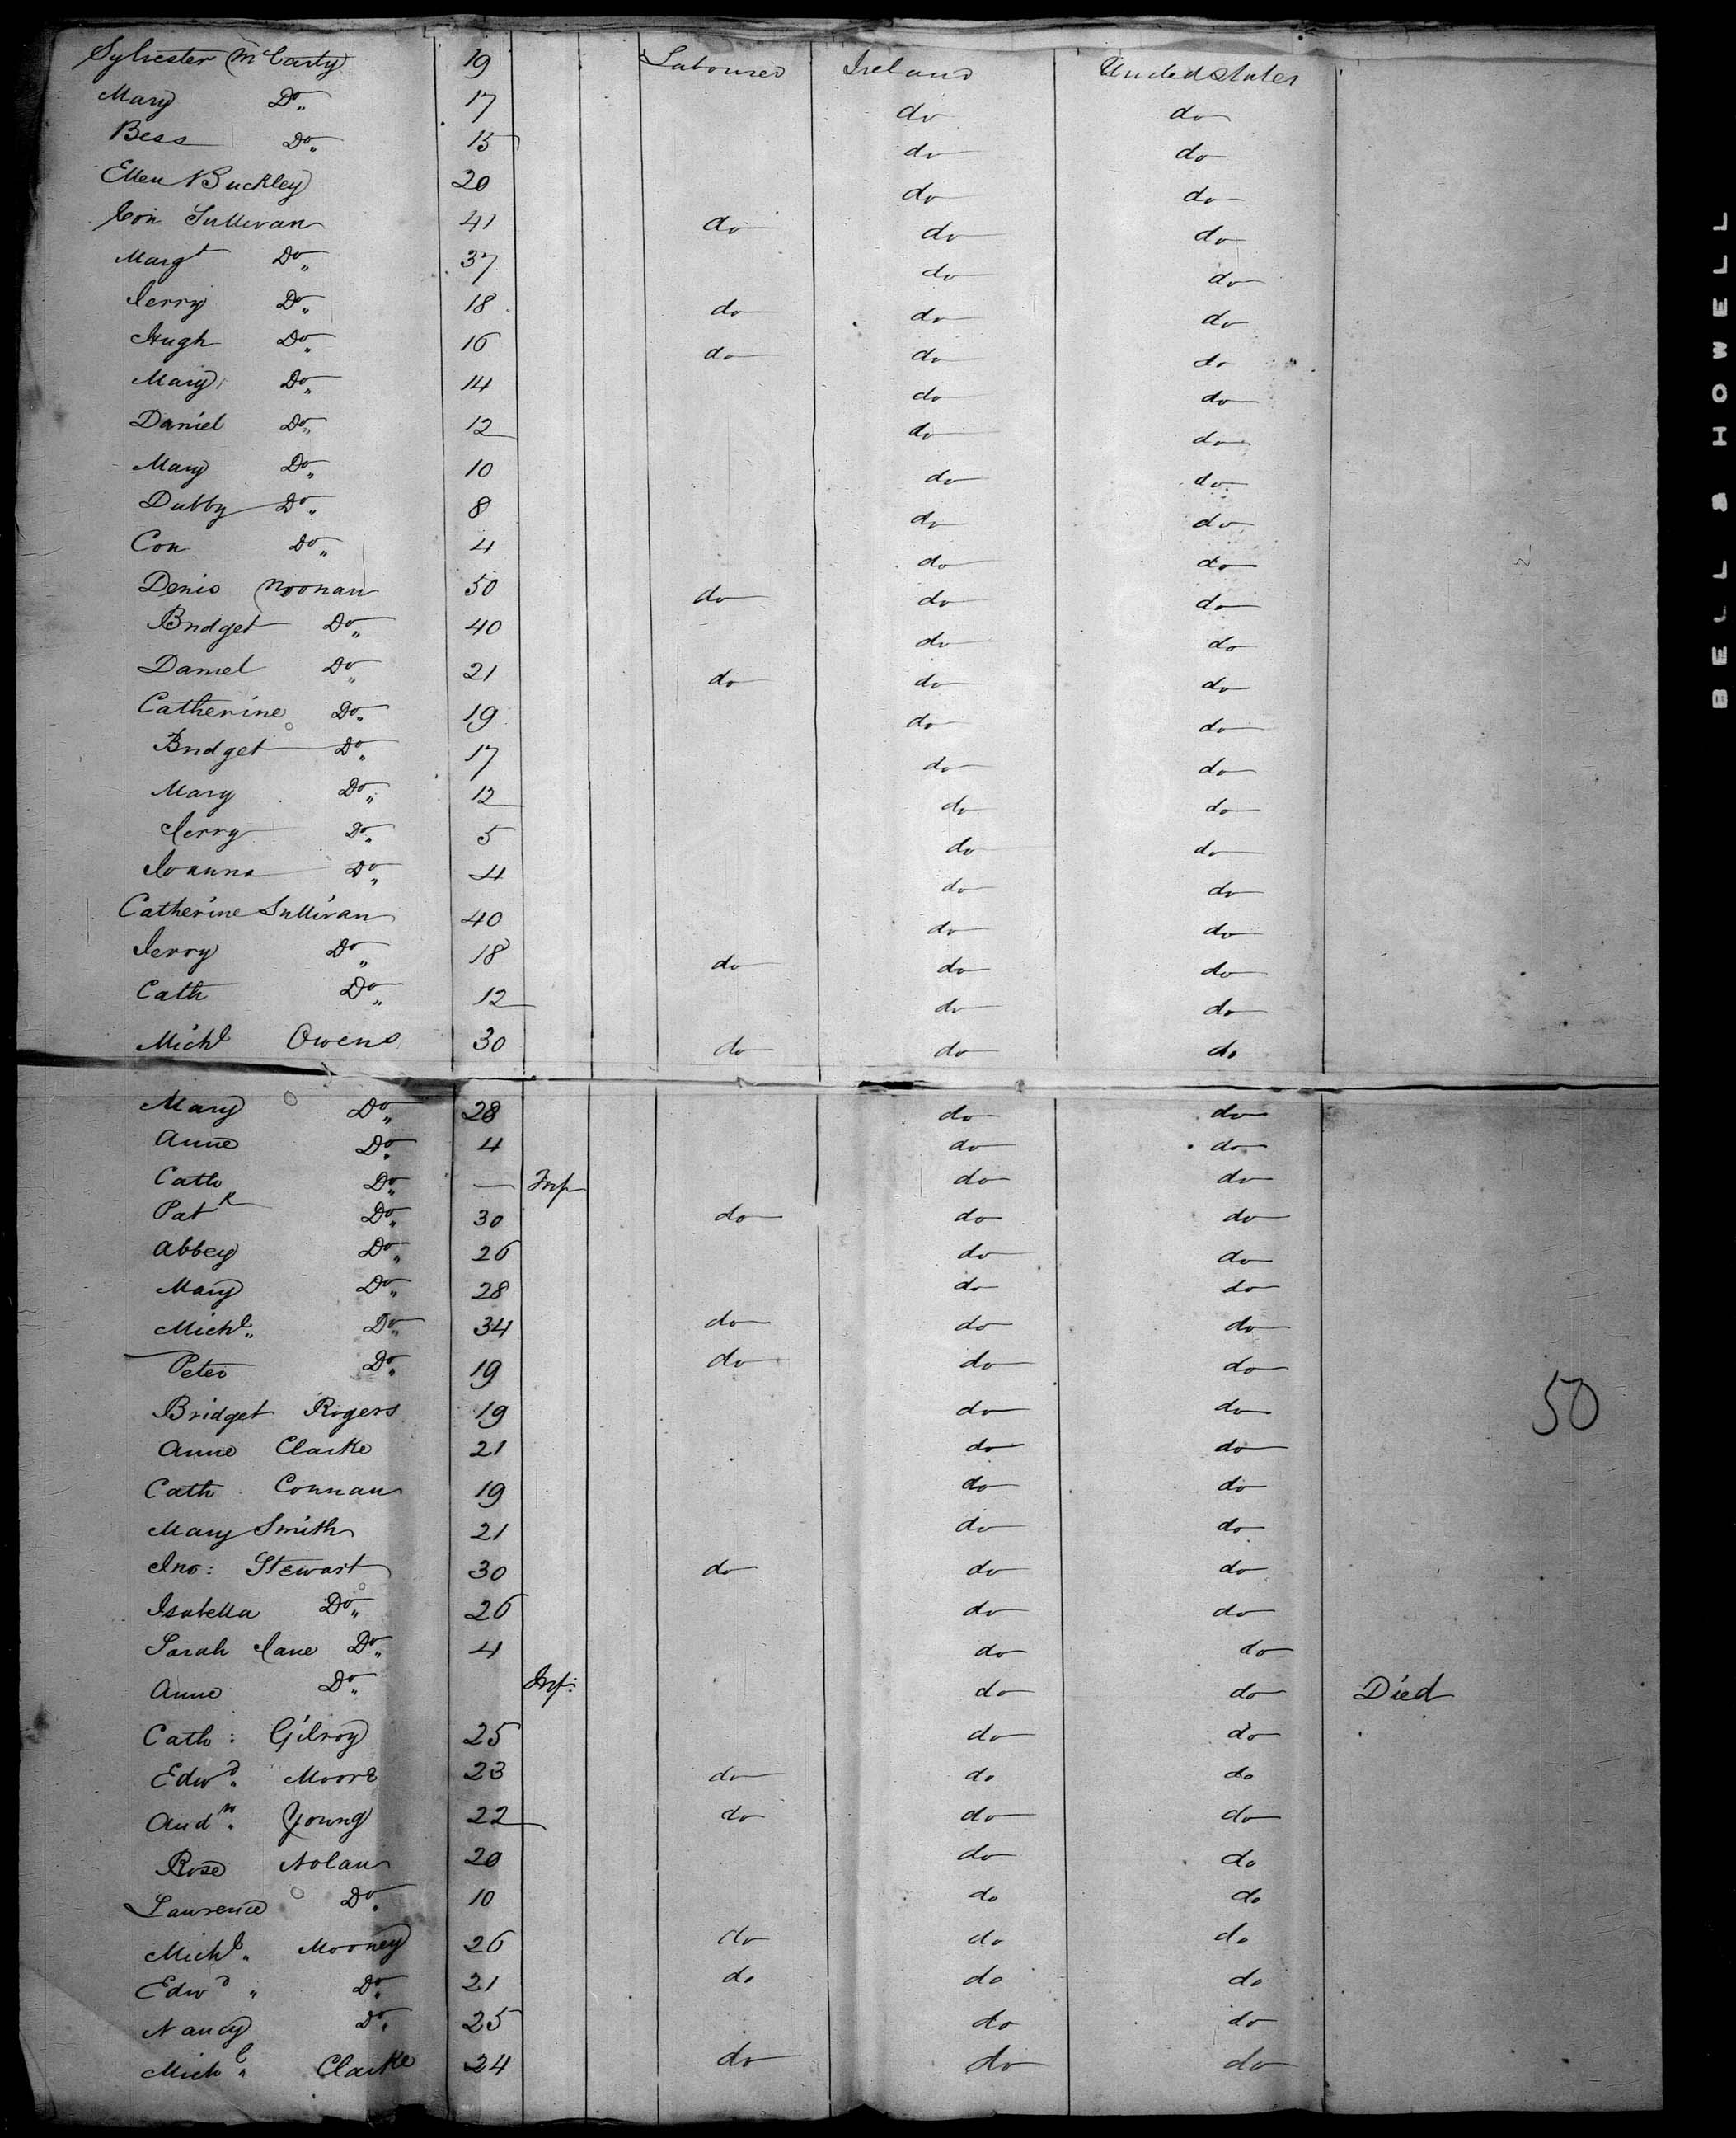 Sylvester McCarty 19 Labourer Ireland United States
Mary Do 17 do do
Bess Do 15 do do
Ellen Buckley 20 do do
Con Sullivan 41 do do do
Margt Do 37 do do
Jerry Do 18 do do do
Hugh Do 16 do do do
Mary Do 14 do do
Daniel Do 12 do do
Mary Do 10 do do
Dubby Do 8 do do
Con Do 4 do do
Denis Noonan 50 do do do
Bridget Do 40 do do
Daniel Do 21 do do do
Catherine Do 19 do do
Bridget Do 17 do do
Mary Do 12 do do
Jerry Do 5 do do
Joanna Do 4 do do
Catherine Sullivan 40 do do
Jerry Do 18 do do do
Cath Do 12 do do
Michl Owens 30 do do do
Mary Do 28 do do
Anne Do 4 do do
Cath Do — Inf do do
Patk Do 30 do do do
Abbey Do 26 do do
Mary Do 28 do do
Michl Do 34 do do do
Peter Do 19 do do do
Bridget Rogers 19 do do
50
Anne Clarke 21 do do
Cath Connan 19 do do
Mary Smith 21 do do
Jno: Stewart 30 do do do
Isabella Do 26 do do
Sarah Jane Do 4 do do
Anne Do Inf: do do Died
Cath: Gilroy 25 do do
Edwd Moore 23 do do do
Andw Young 22 do do do
Rose Nolan 20 do do
Laurence Do 10 do do
Michl Mooney 26 do do do
Edwd Do 21 do do do
Nancy Do 25 do do
Michl Clarke 24 do do do
BELL & HOWELL